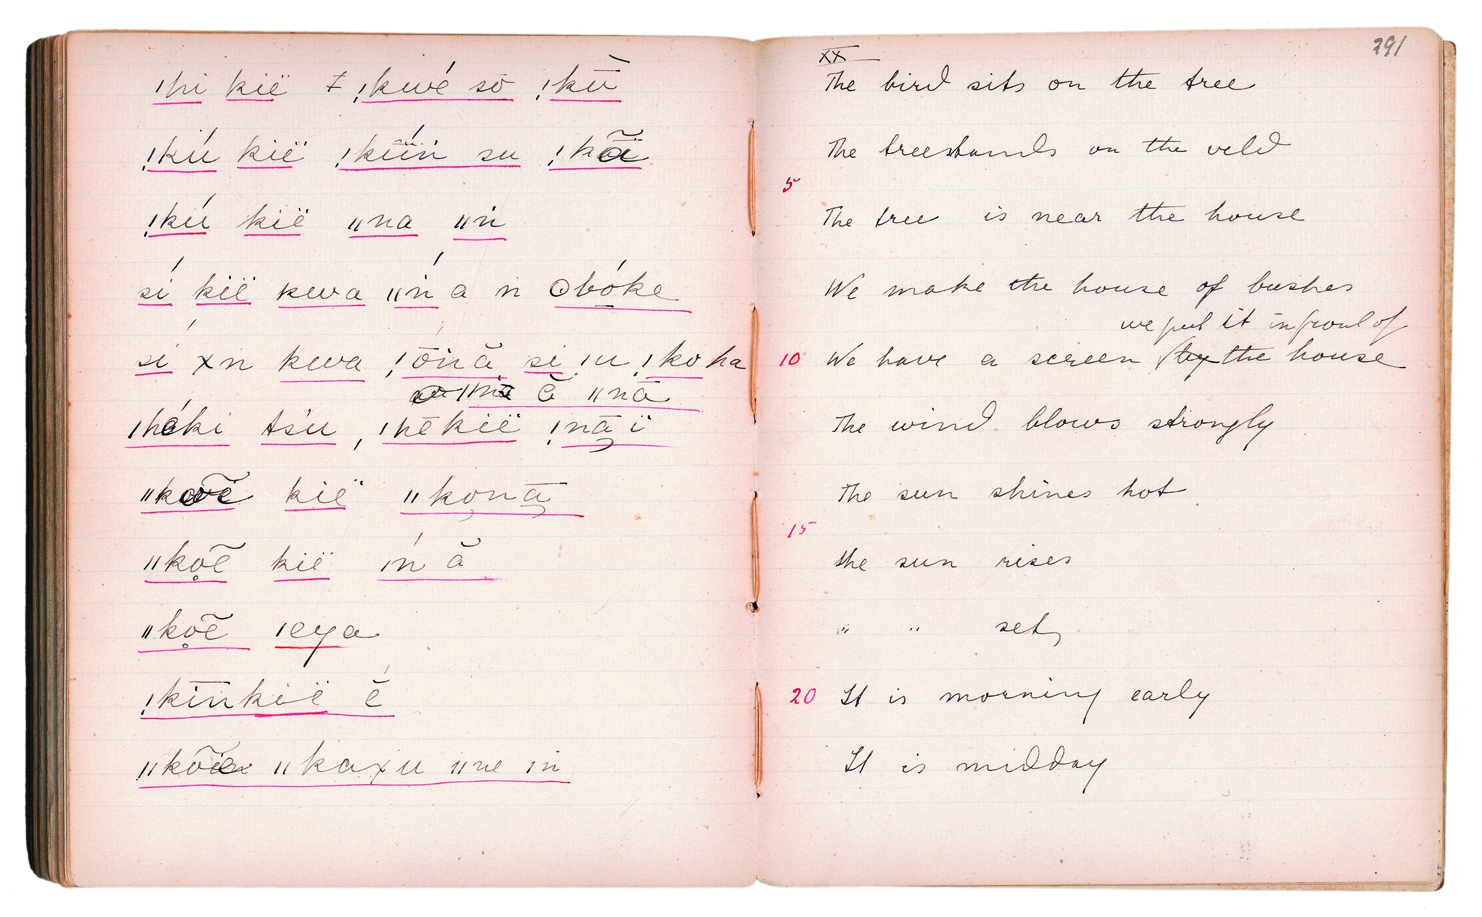 ǀhi kië ǂ ǃkwé sō ǃkū̀
ǃkú kië ǃkṹń su ǃkã
ǃkú kië ǁna ǁṅ
sí kië kwa ǁńa n ʘbóke
sí ×n kwa ǃōnă si ǀu ǃko ha
ă ǁnā
ǀhéki tsú, ǀhēkië ǃną̄ ï
ǁkoë̃ kië ǁkoną̄
ǁkọẽ kië ıń ă
ǁkọẽ ǀeya
ǃkīnkië ḗ
ǁkõë ǁkaxu ǁne in
291
XX
The bird sits on the tree
The tree stands on the veld
5
The tree is near the house
We make the house of bushes
we put it in front of
10 We have a screen by the house
The wind blows strongly
The sun shines hot
15
the sun rises
" " sets
20 It is morning early
It is midday